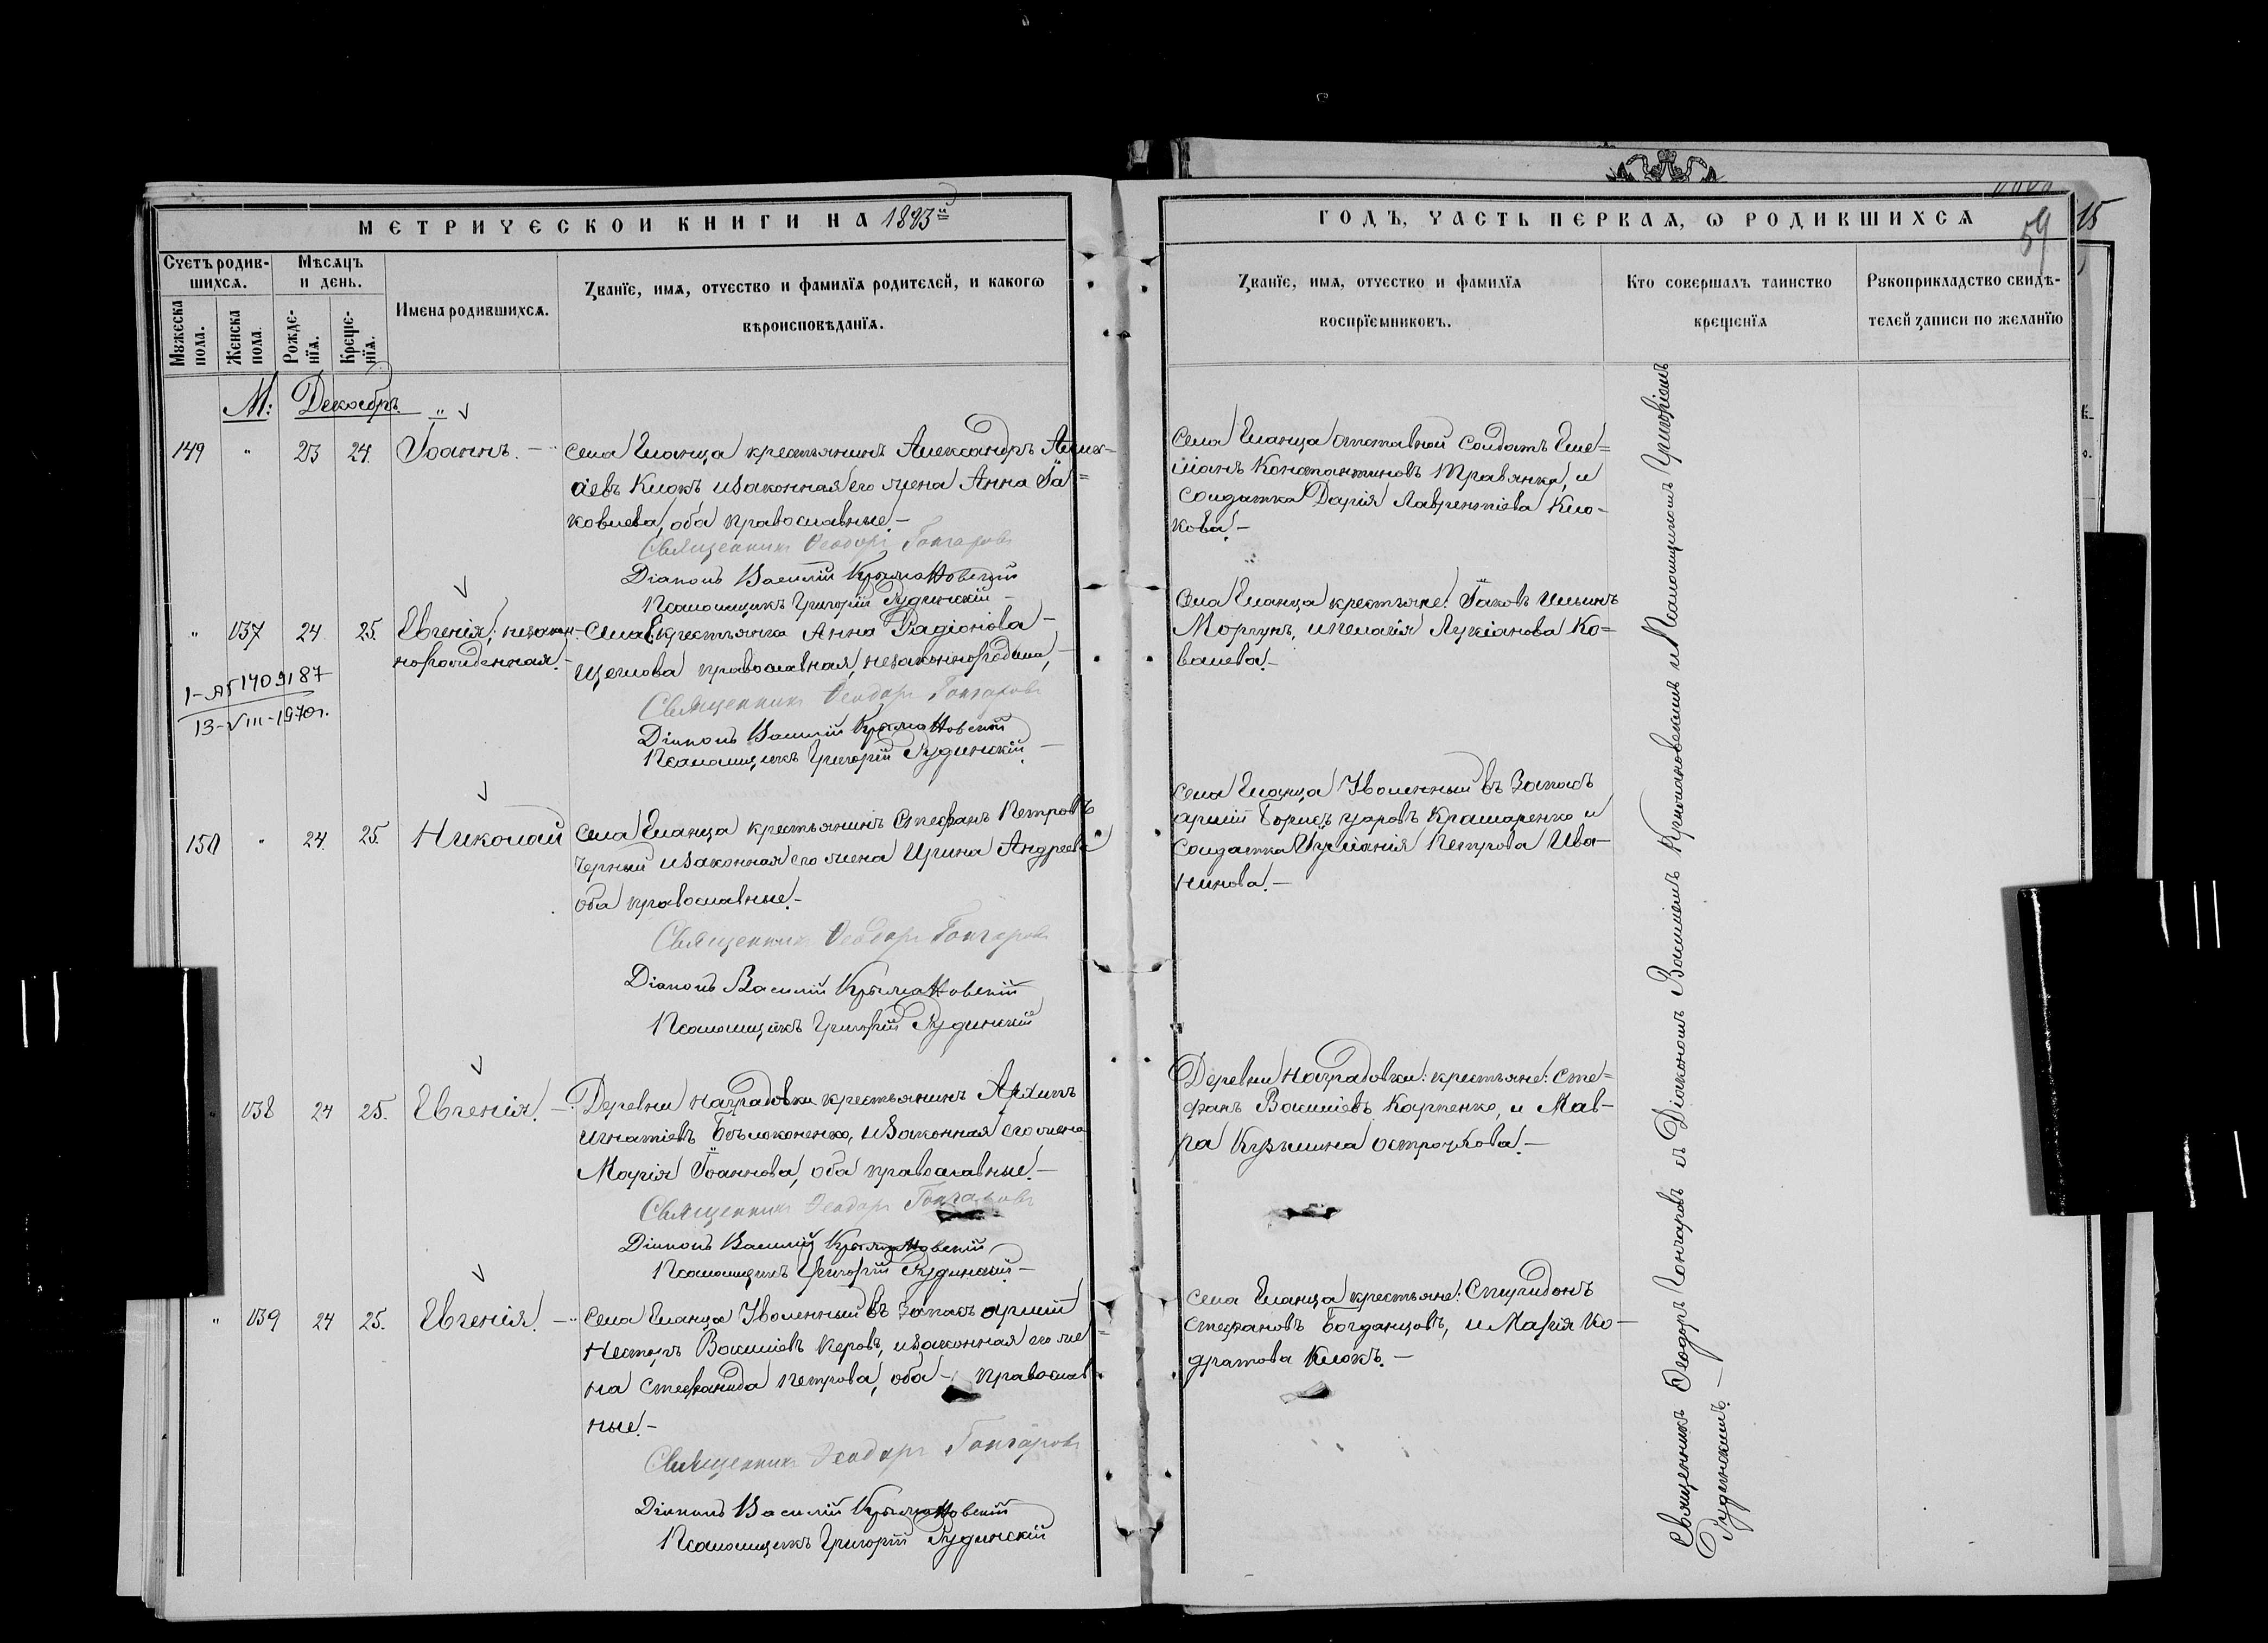 МЕТРИЧЕСКОЙ КНИГИ НА 1893й
ГОДЪ, ЧАСТЬ ПЕРВАЯ, Ѡ РОДИВШИХСЯ
59
15
Счетъ родив-
шихся.
Мѣсяцъ
и день.
Мужеска
пола.
Женска
пола.
Рожде-
нїя.
Креще-
нїя.
Имена родившихся.
Званїе, имя, отчество и фамилїя родителей, и какогѡ
вѣроисповѣданїя.
Званїе, имя, отчество и фамилїя
воспрїемниковъ.
Кто совершалъ таинство
крещенїя
Рукоприкладство свидѣ-
телей записи по желанїю
М: Декабрь
149 " 23 24. Іоаннъ. —
села Еланца крестьянинъ Александръ
аевъ Клокъ и законная его жена Анна Іа=
ковлева, оба православные. —
Священникъ Ѳеодоръ Гончаровъ
Діаконъ Василій Крыжановскій
Псаломщикъ Григорій Рудинскій —
Села Еланца отставной солдатъ Еме=
ліанъ Константиновъ Травянко, и
солдатка Дарія Лаврентіева Кло-
кова. —
" 137 24 25. Евгенія; незакон-
норожденная. —
Села Е. крестьянка Анна Радіонова —
Щеглова православная, незаконнородила, —
Священникъ Ѳеодоръ Гончаровъ
Діаконъ Василій Крыжановскій
Псаломщикъ Григорій Рудинскій. —
Села Еланца крестьяне: Іаковъ Ильинъ
Моргунъ, и Пелагія Лукіанова Ко=
валева. —
1-АГ 1409187
13-VIII-1970г.
150 " 24. 25. Николай
села Еланца крестьянинъ Стефанъ Петровъ
Черный и законная его жена Ирина Андреева
оба православные. —
Священникъ Ѳеодоръ Гончаровъ
Діаконъ Василій Крыжановскій
Псаломщикъ Григорій Рудинскій
села Еланца Уволенный въ запасъ
арміи Борисъ Крамаренко и
солдатка Петрова Ива-
нинова. —
" 138 24 25. Евгенія. —
Деревни Наградовки крестьянинъ Архипъ
Игнатіевъ Бѣлоконенко, и законная его жена
Марія Іоаннова, оба православные. —
Священникъ Ѳеодоръ Гончаровъ
Діаконъ Василій Крыжановскій
Псаломщикъ Григорій Рудинскій —
Деревни Наградовки: крестьяне: Сте=
фанъ Василіевъ Карпенко, и Мав-
ра Кузьмина Остроухова. —
" 139 24 25. Евгенія. —
Села Еланца Уволенный въ запасъ арміи
Несторъ Василіевъ Керовъ, и законная его же=
на Стефанида Петрова, оба — православ-
ные. —
Священникъ Ѳеодоръ Гончаровъ
Діаконъ Василій Крыжановскій
Псаломщикъ Григорій Рудинскій
Села Еланца крестьяне: Спиридонъ
Стефановъ Богданцовъ, и Марія Ко-
дратова Клокъ. —
Священникъ Ѳеодоръ Гончаровъ съ Діакономъ Василіемъ Крыжановскимъ и Псаломщикомъ Григоріемъ
Рудинскимъ. —